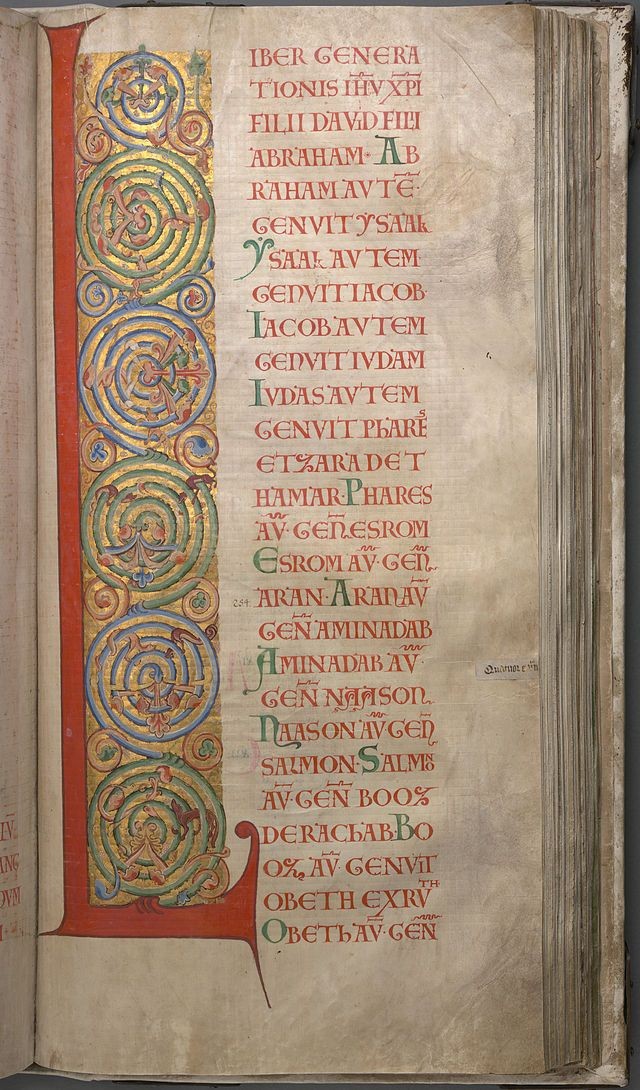 L
IBER GENERA
TIONIS IHV XPI
FILII DAVID FILII
ABRAHAM· AB
RAHAM AVTE·
GENVIT YSAAK
YSAAK AVTEM
GENVIT IACOB
IACOB AVTEM
GENVIT IVDAM
IVDAS AVTEM
GENVIT PHARES
ET ZARAD ET
HAMAR· PHARES
AV· GEN ESROM
ESROM AV· GEN
254. ARAN· ARAN AV
GEN AMINADAB
AMINADAB AV·
GEN NAASON
NAASON AV GEN
SALMON· SALMNO
AV· GEN BOOZ
DE RACHAB· BO
OZ, AV· GENVIT
OBETH EX RVTH
OBETH AV· GEN